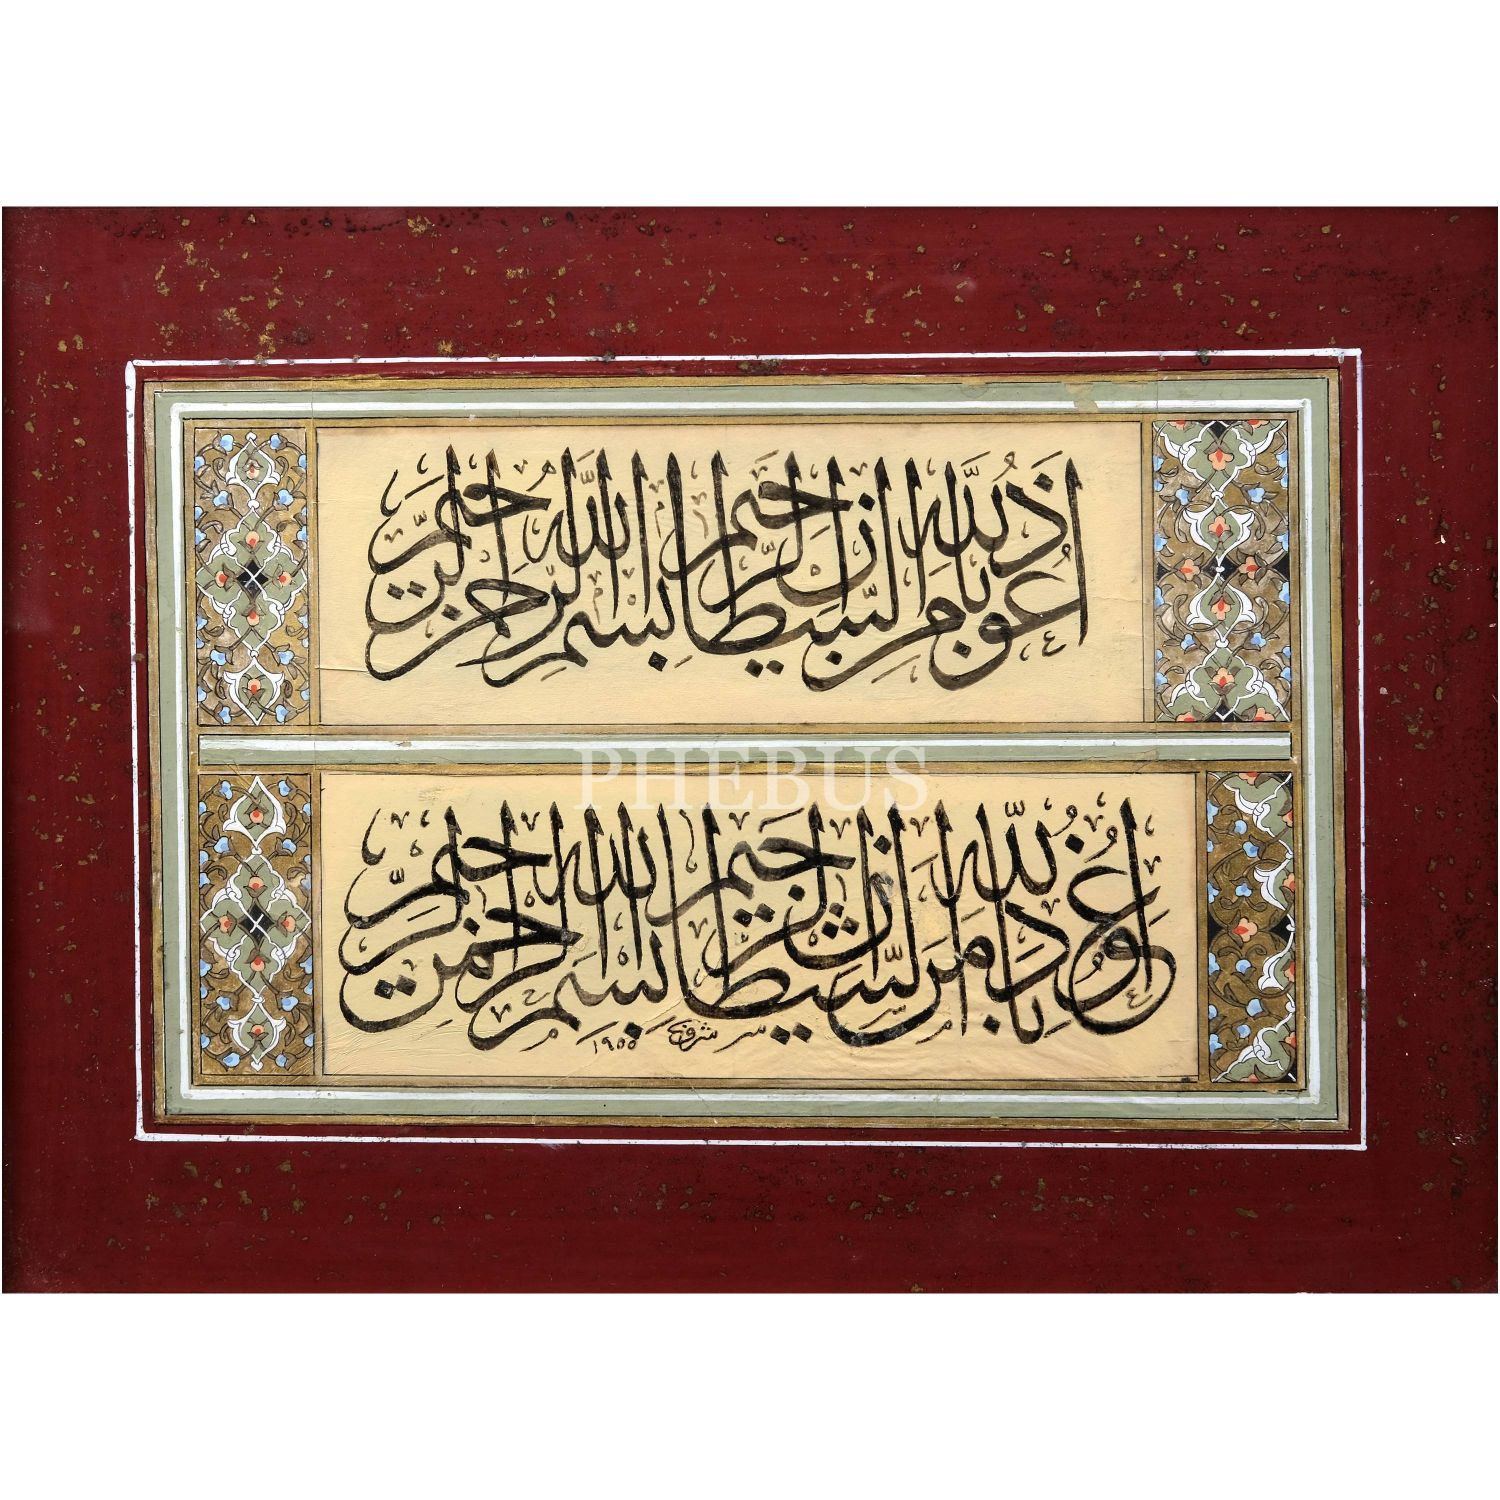 أعوذ بالله من الشيطان الرجيم بسم الله الرحمن الرحيم
PHEBUS
أعوذ بالله من الشيطان الرجيم بسم الله الرحمن الرحيم
١٩٥٥